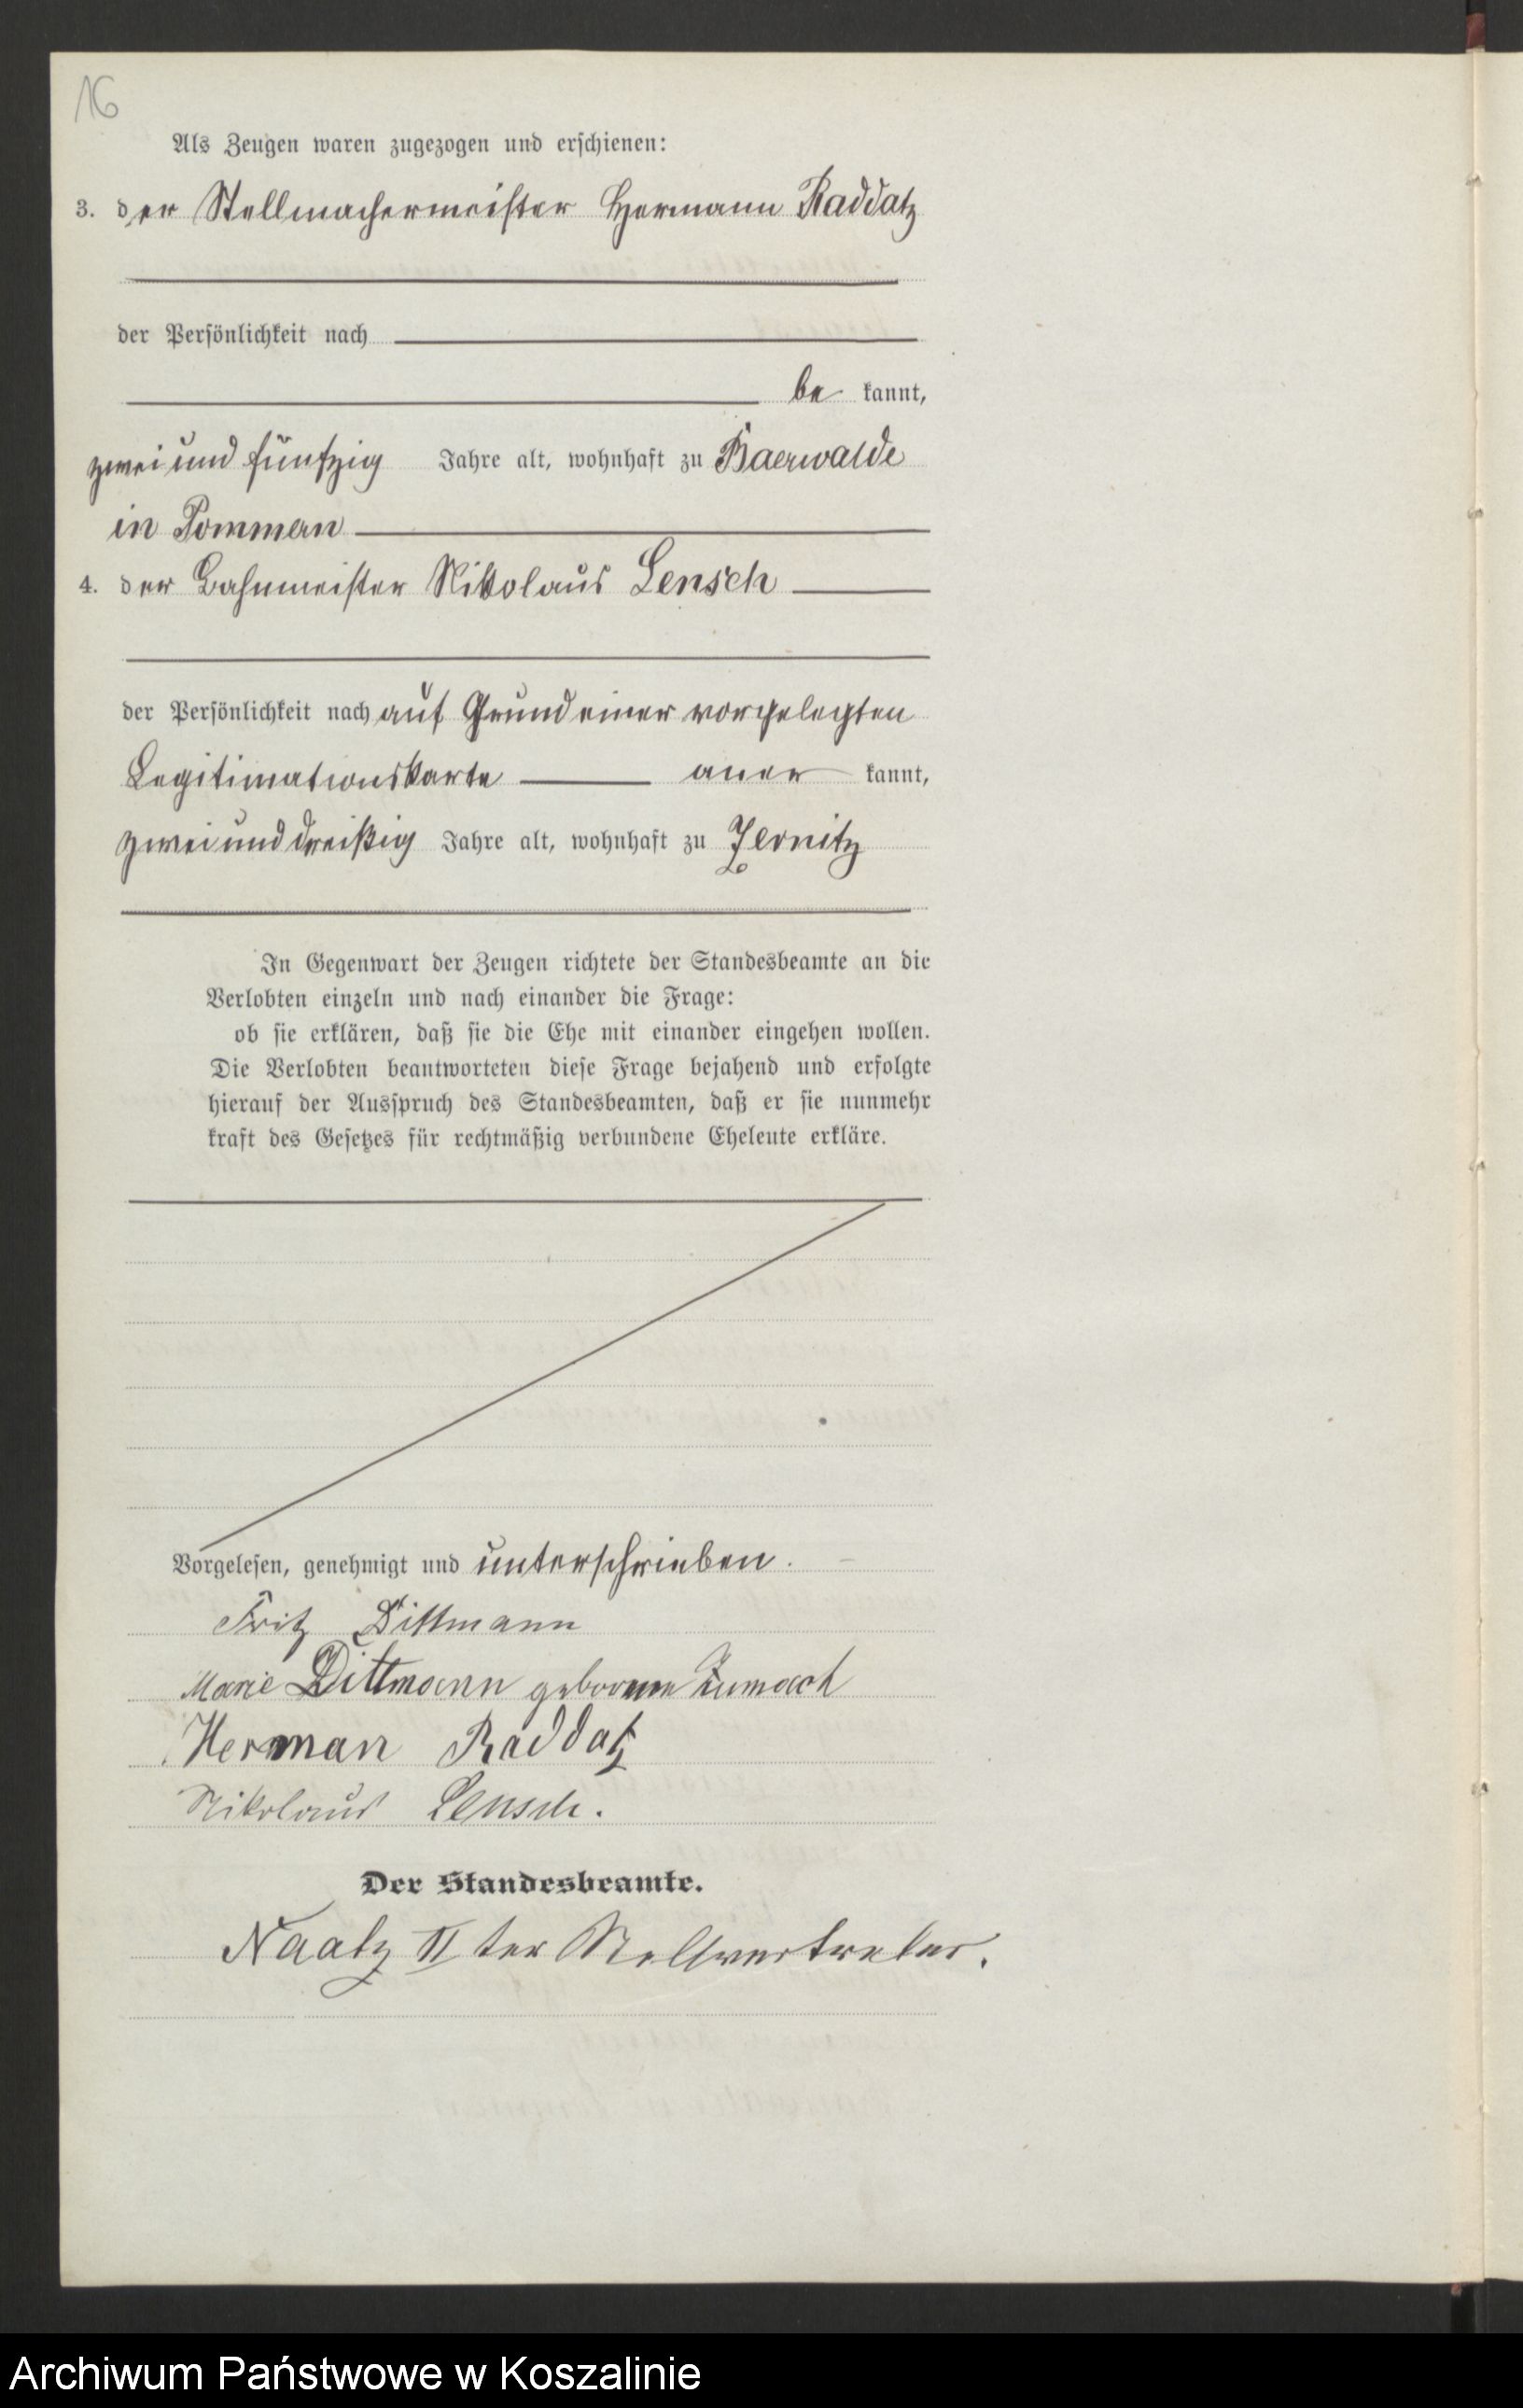 16
Als Zeugen waren zugezogen und erschienen:
3. der Stellmachermeister Hermann Raddatz
der Persönlichkeit nach
be kannt,
zwei und fünfzig Jahre alt, wohnhaft zu Baerwalde
in Pommern
4. der Bahnmeister Nikolaus Lensch
der Persönlichkeit nach auf Grund einer vorgelegten
Legitimationskarte aner kannt,
zwei und dreißig Jahre alt, wohnhaft zu
In Gegenwart der Zeugen richtete der Standesbeamte an die
Verlobten einzeln und nach einander die Frage:
ob sie erklären, daß sie die Ehe mit einander eingehen wollen.
Die Verlobten beantworteten diese Frage bejahend und erfolgte
hierauf der Ausspruch des Standesbeamten, daß er sie nunmehr
kraft des Gesetzes für rechtmäßig verbundene Eheleute erkläre.
Vorgelesen, genehmigt und unterschrieben.
Fritz Dittmann
Marie Dittmann geborene Zumach
Herman Raddatz
Nikolaus Lensch.
Der Standesbeamte.
Naatz II ter Stellvertreter.
Archiwum Państwowe w Koszalinie